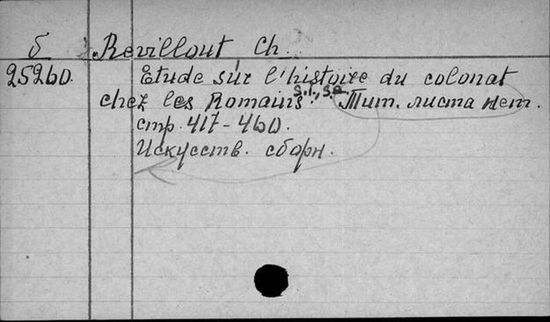 б Revillout, Ch.
25260. Etude sur l'histoire du colonat
chez les Romains. S.l., s.a. Тит. листа нет.
стр. 417-460.
Искусств. сборн.